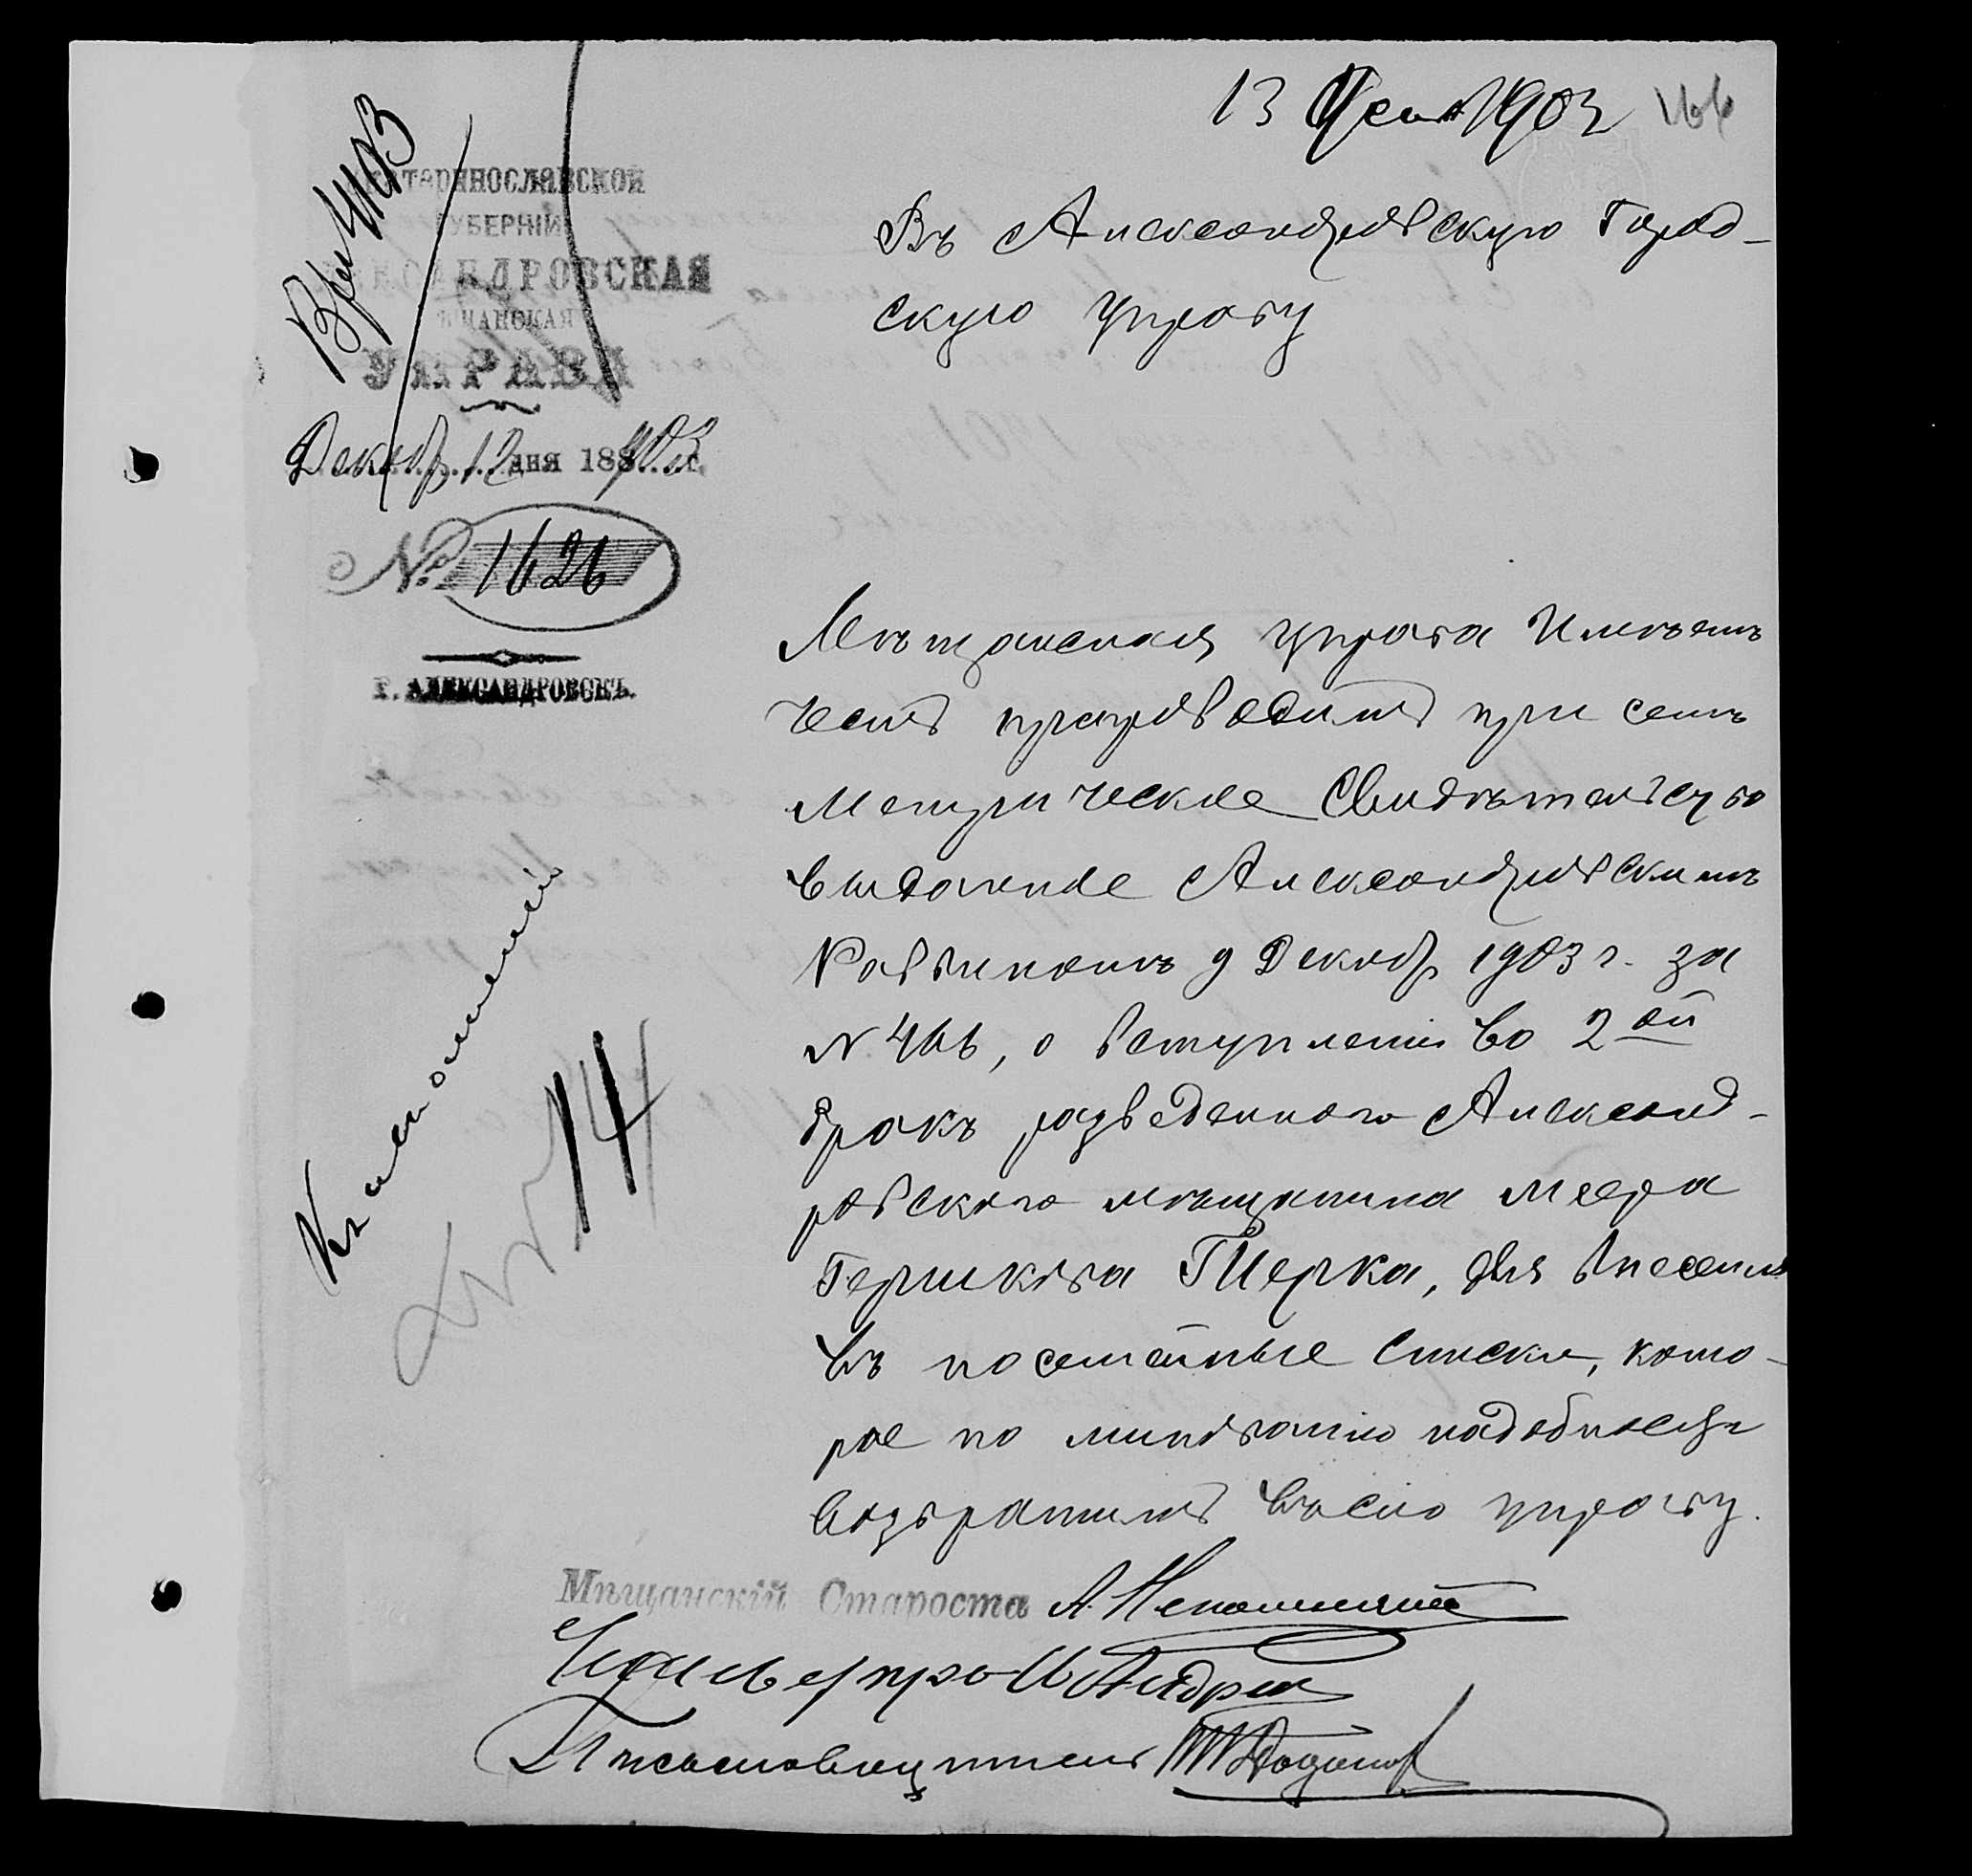 13 Дек 1903
166
Екатеринославской
ГУБЕРНІИ
АЛЕКСАНДРОВСКАЯ
МѢЩАНСКАЯ
УПРАВА
Декабр. 12 дня 1903 г.
№ 1626
Г. АЛЕКСАНДРОВСКЪ.
Въ Александровскую Город-
скую управу
Мѣщанская управа имѣетъ
честь препроводить при семъ
Метрическое Свидѣтельство
выданное Александровскимъ
Раввиномъ 9 Декабр 1903 г. за
№ 466, о вступленіи во 2ой
бракъ разведеннаго Александ-
ровского мѣщанина Меера
Гершкова Шерка, для внесенія
въ посемейные списки, кото-
рое по минованіи надобности
возвратить въ сію управу.
14
Мѣщанскій Староста А.
Членъ упр.
Письмоводитель